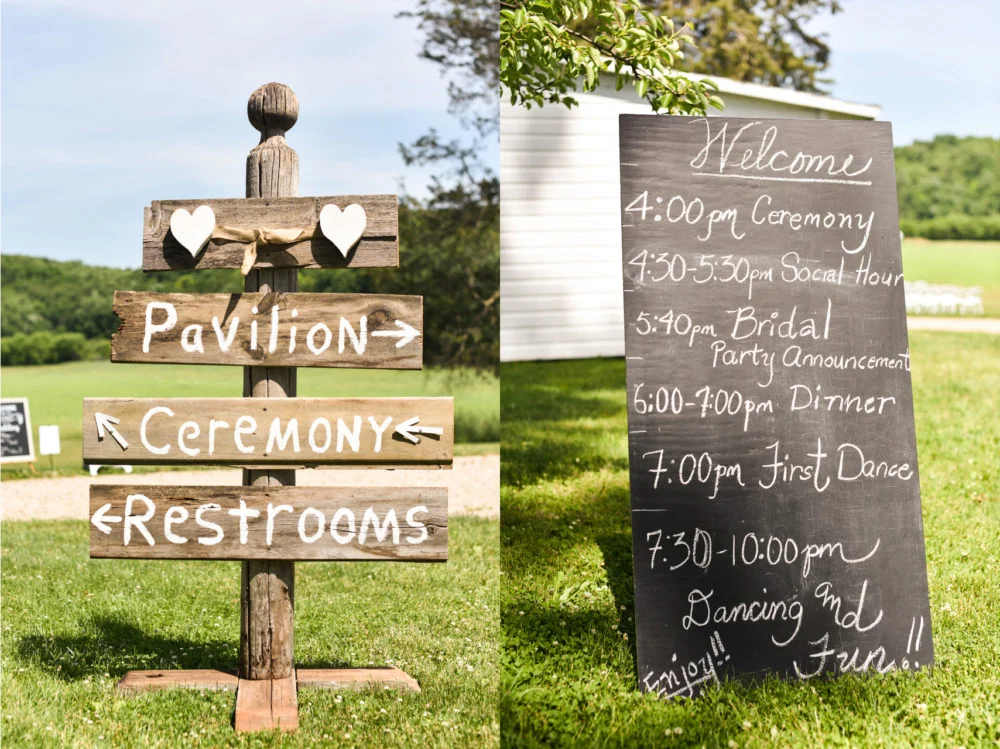 Pavilion →
↖ Ceremony ←
← Restrooms
Welcome
4:00pm Ceremony
4:30-5:30pm Social Hour
5:40pm Bridal
Party Announcement
6:00-7:00pm Dinner
7:00pm First Dance
7:30-10:00pm
Dancing and
Fun!!
Enjoy!!